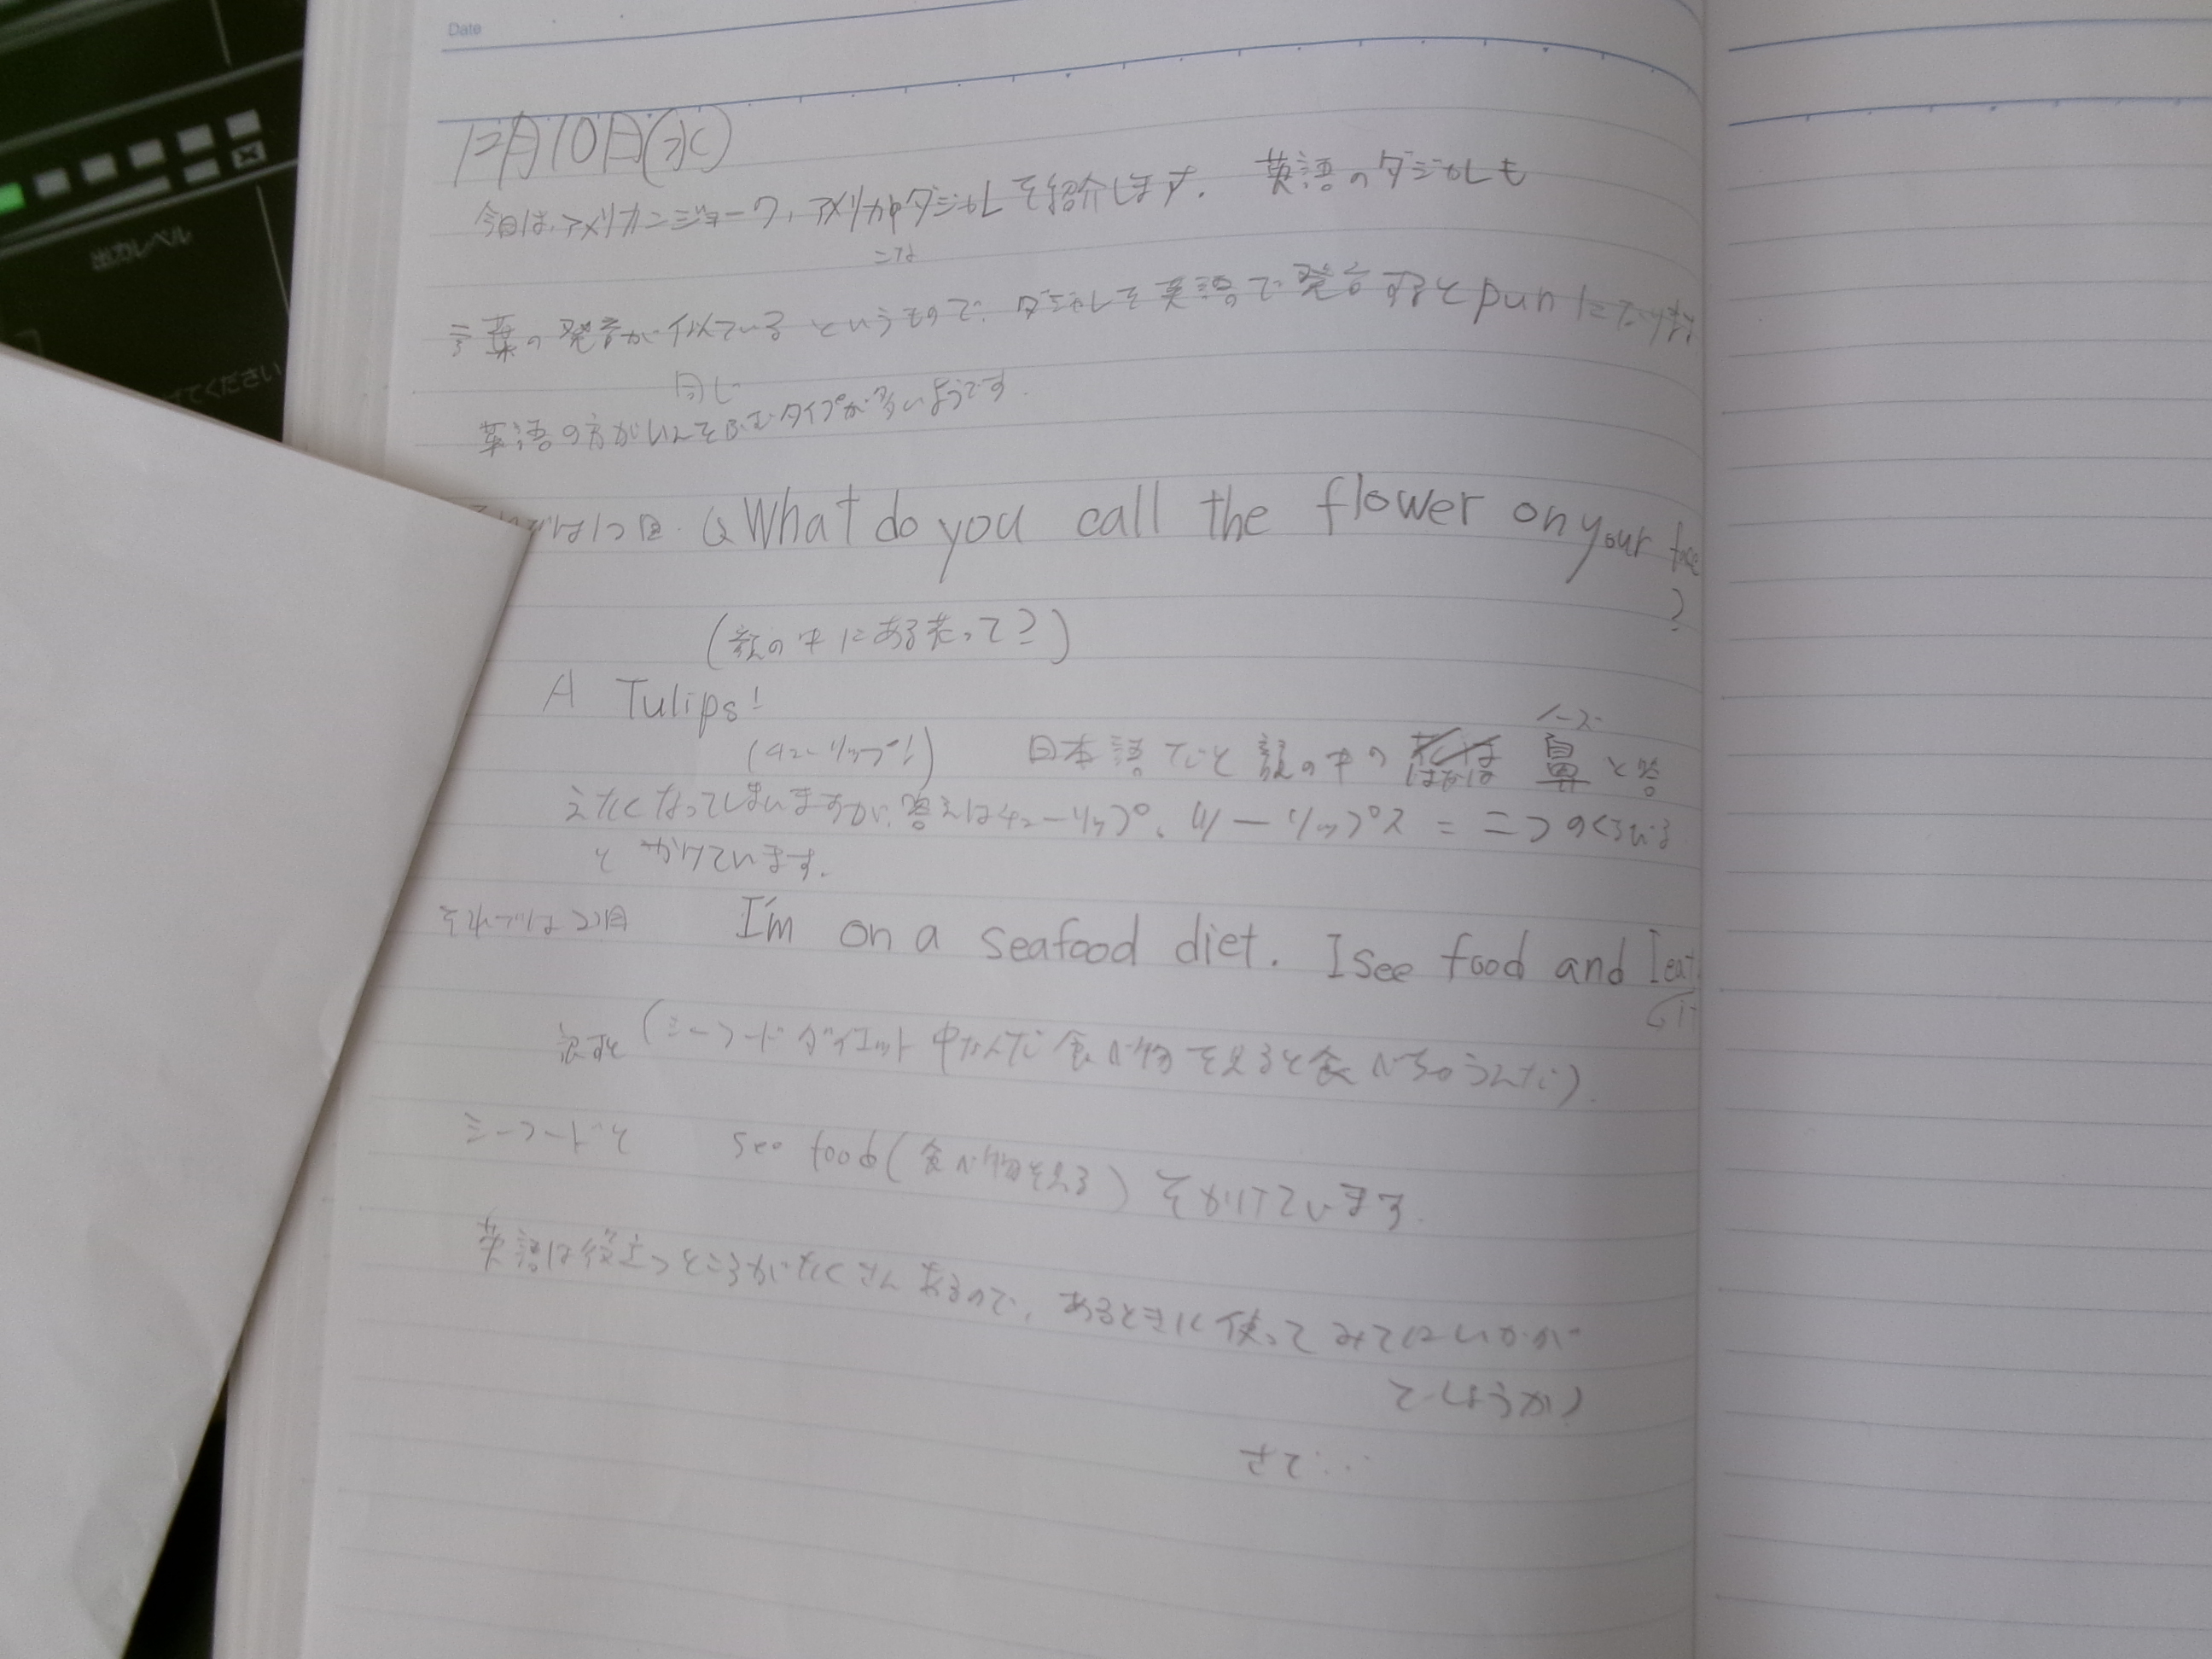 Date
12月10日(水)
今日は、アメリカンジョーク、アメリカやダジャレを紹介します. 英語のダジャレも
言葉の発音が似ているというもので、ダジャレを英語で発言するとpunになります
同じ
英語の方がいんをふむタイプが多いようです.
それでは1つ目. Q What do you call the flower on your face
?
(顔の中にある花って?)
A Tulips!
(チューリップ!) 日本語でいと顔の中の 鼻と答
えたくなってしまいますが、答えはチューリップ、ツーリップス=二つのくちびる
とかけています.
それでは2つ目 I'm on a seafood diet. I see food and I eat
it
訳すと(シーフードダイエット中なんだ食べ物を見ると食べちゃうんだ).
シーフードと see food(食べ物を見る)をかけています.
英語は役立つところがたくさんあるので、あるときに使ってみてはいかが
でしょうか?
さて...
出力レベル
てください